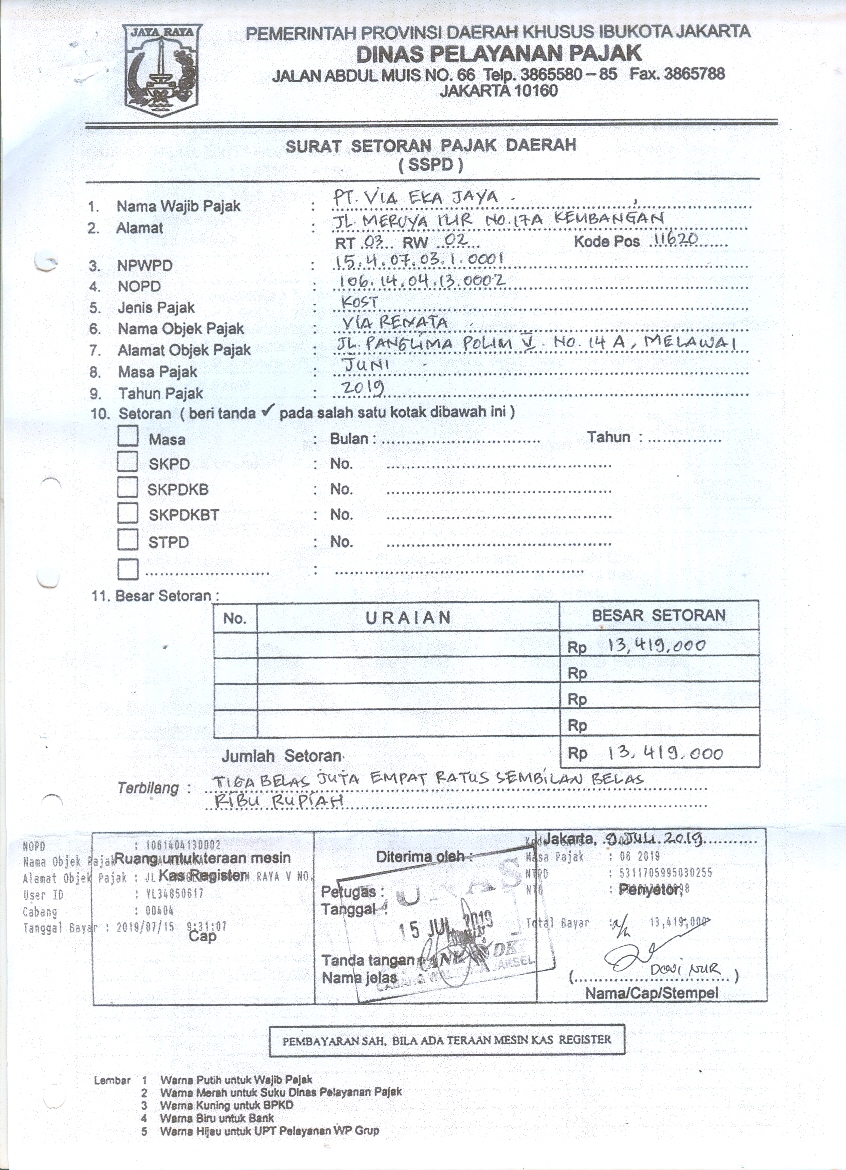 JAYA RAYA
PEMERINTAH PROVINSI DAERAH KHUSUS IBUKOTA JAKARTA
DINAS PELAYANAN PAJAK
JALAN ABDUL MUIS NO. 66 Telp. 3865580 – 85 Fax. 3865788
JAKARTA 10160
SURAT SETORAN PAJAK DAERAH
( SSPD )
1. Nama Wajib Pajak : PT. VIA EKA JAYA
2. Alamat : JL. MERUYA ILIR NO. 17A KEMBANGAN
RT 03 RW 02 Kode Pos 11620
3. NPWPD : 15.4.07.03.1.0001
4. NOPD : 106.14.04.13.0002
5. Jenis Pajak : KOST
6. Nama Objek Pajak : VIA RENATA
7. Alamat Objek Pajak : JL. PANGLIMA POLIM V. NO. 14 A, MELAWAI
8. Masa Pajak : JUNI
9. Tahun Pajak : 2019
10. Setoran ( beri tanda ✓ pada salah satu kotak dibawah ini )
Masa : Bulan : Tahun :
SKPD : No.
SKPDKB : No.
SKPDKBT : No.
STPD : No.
:
11. Besar Setoran :
No. URAIAN BESAR SETORAN
Rp 13,419,000
Rp
Rp
Rp
Jumlah Setoran Rp 13.419.000
Terbilang : TIGA BELAS JUTA EMPAT RATUS SEMBILAN BELAS
RIBU RUPIAH
Jakarta, 9 JULI 2019
NOPD : 1061404130002
Nama Objek Pajak Ruang untuk teraan mesin Diterima oleh : Masa Pajak : 06 2019
Alamat Objek Pajak : JL Kas Register RAYA V NO. NTPD : 5311705995030255
User ID : YL34850617 Petugas : Penyetor,
Cabang : 00404 Tanggal :
Tanggal Bayar : 2019/07/15 9:31:07 15 JUL 2019 Total Bayar : 13,419,000
Cap
LUNAS
Tanda tangan
Nama jelas JAKSEL
( DONI NUR )
Nama/Cap/Stempel
PEMBAYARAN SAH, BILA ADA TERAAN MESIN KAS REGISTER
Lembar 1 Warna Putih untuk Wajib Pajak
2 Warna Merah untuk Suku Dinas Pelayanan Pajak
3 Warna Kuning untuk BPKD
4 Warna Biru untuk Bank
5 Warna Hijau untuk UPT Pelayanan WP Grup